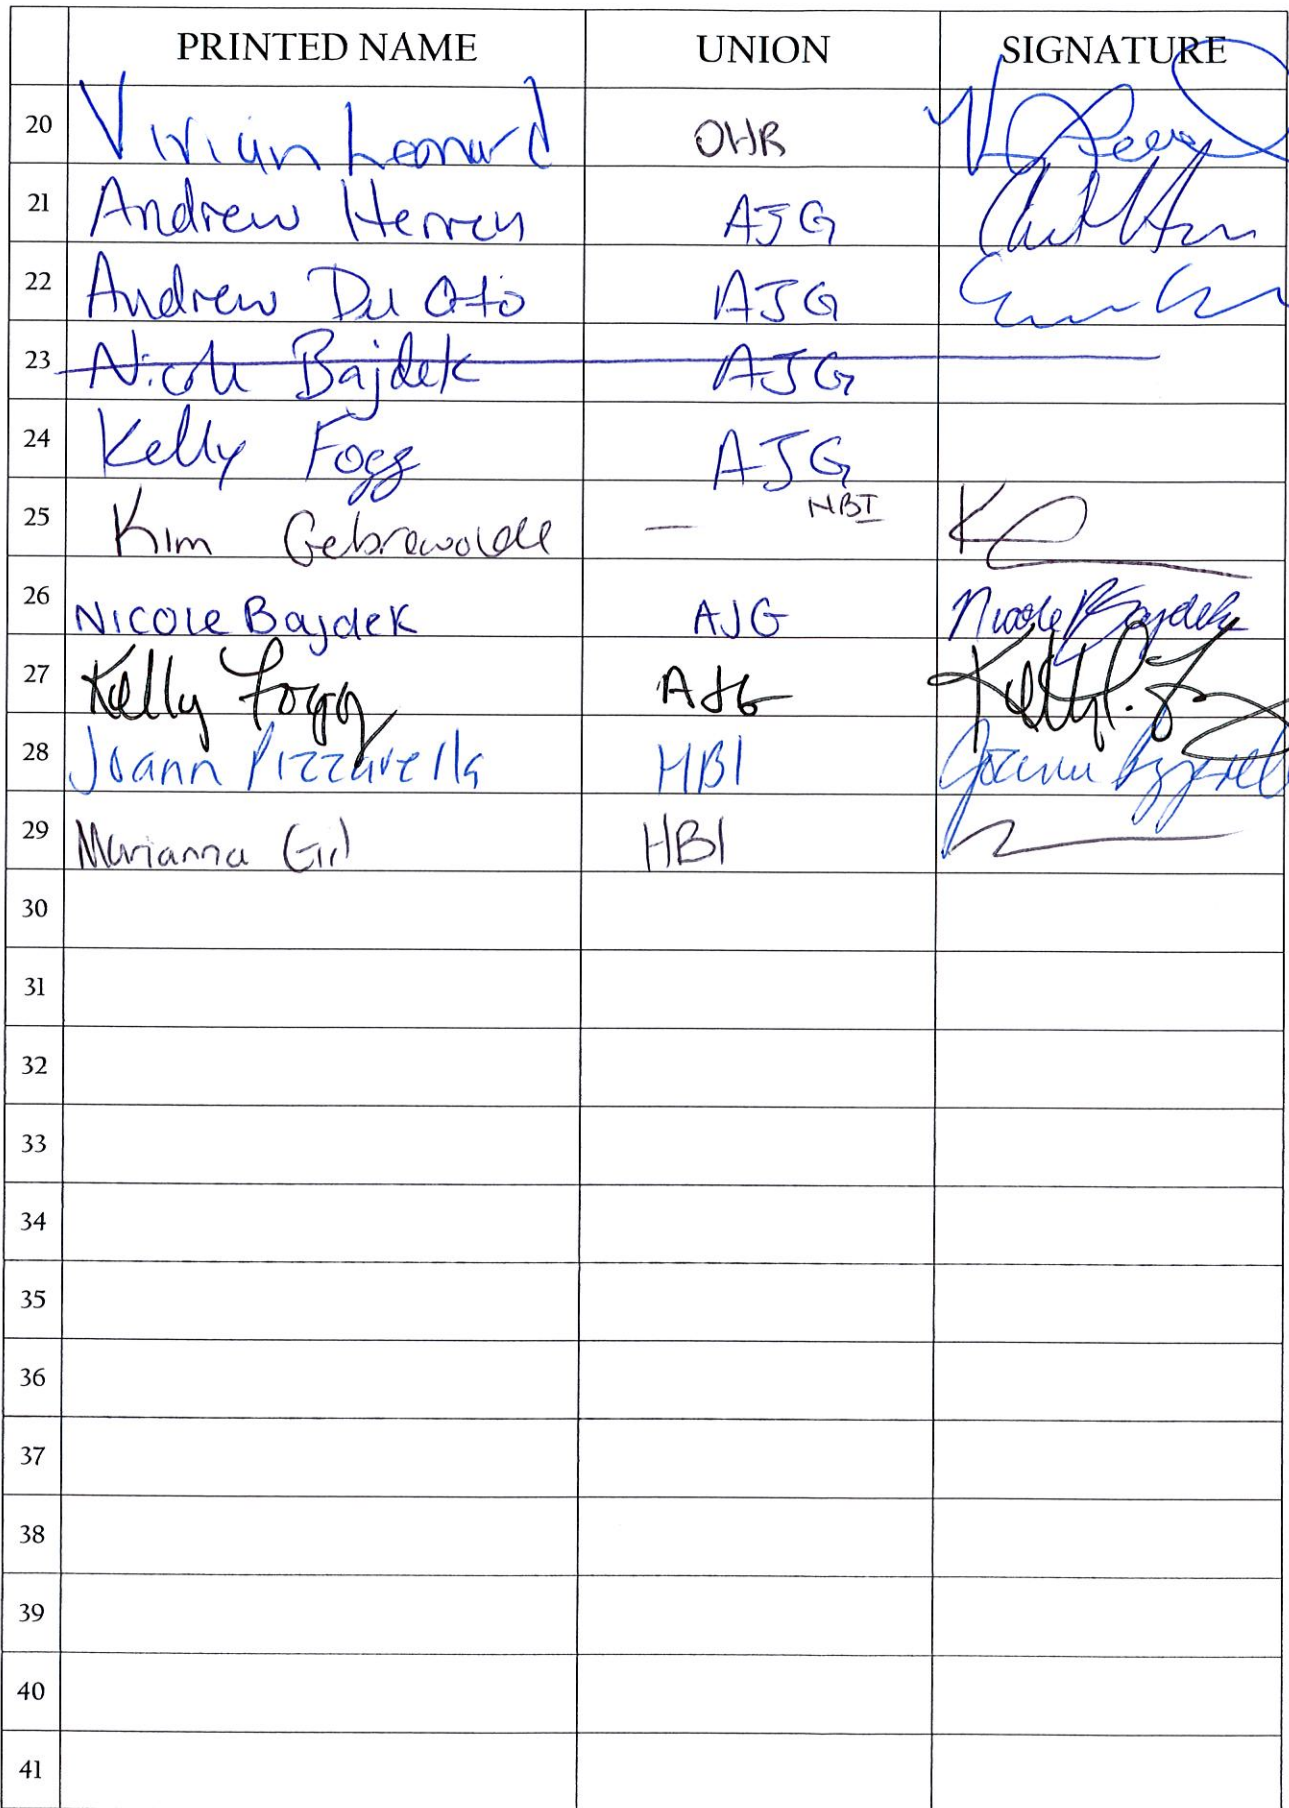 PRINTED NAME UNION SIGNATURE
20 Vivian Leonard OHR
21 Andrew Herren AJG
22 Andrew Du AJG
23 Nicole Bajdek AJG
24 Kelly Fogg AJG
25 Kim Gebrewolde — HBI
26 Nicole Bajdek AJG Nicole Bajdek
27 Kelly Fogg AJG
28 Joann Pizzarella HBI Joann
29 Marianna Gil HBI
30
31
32
33
34
35
36
37
38
39
40
41